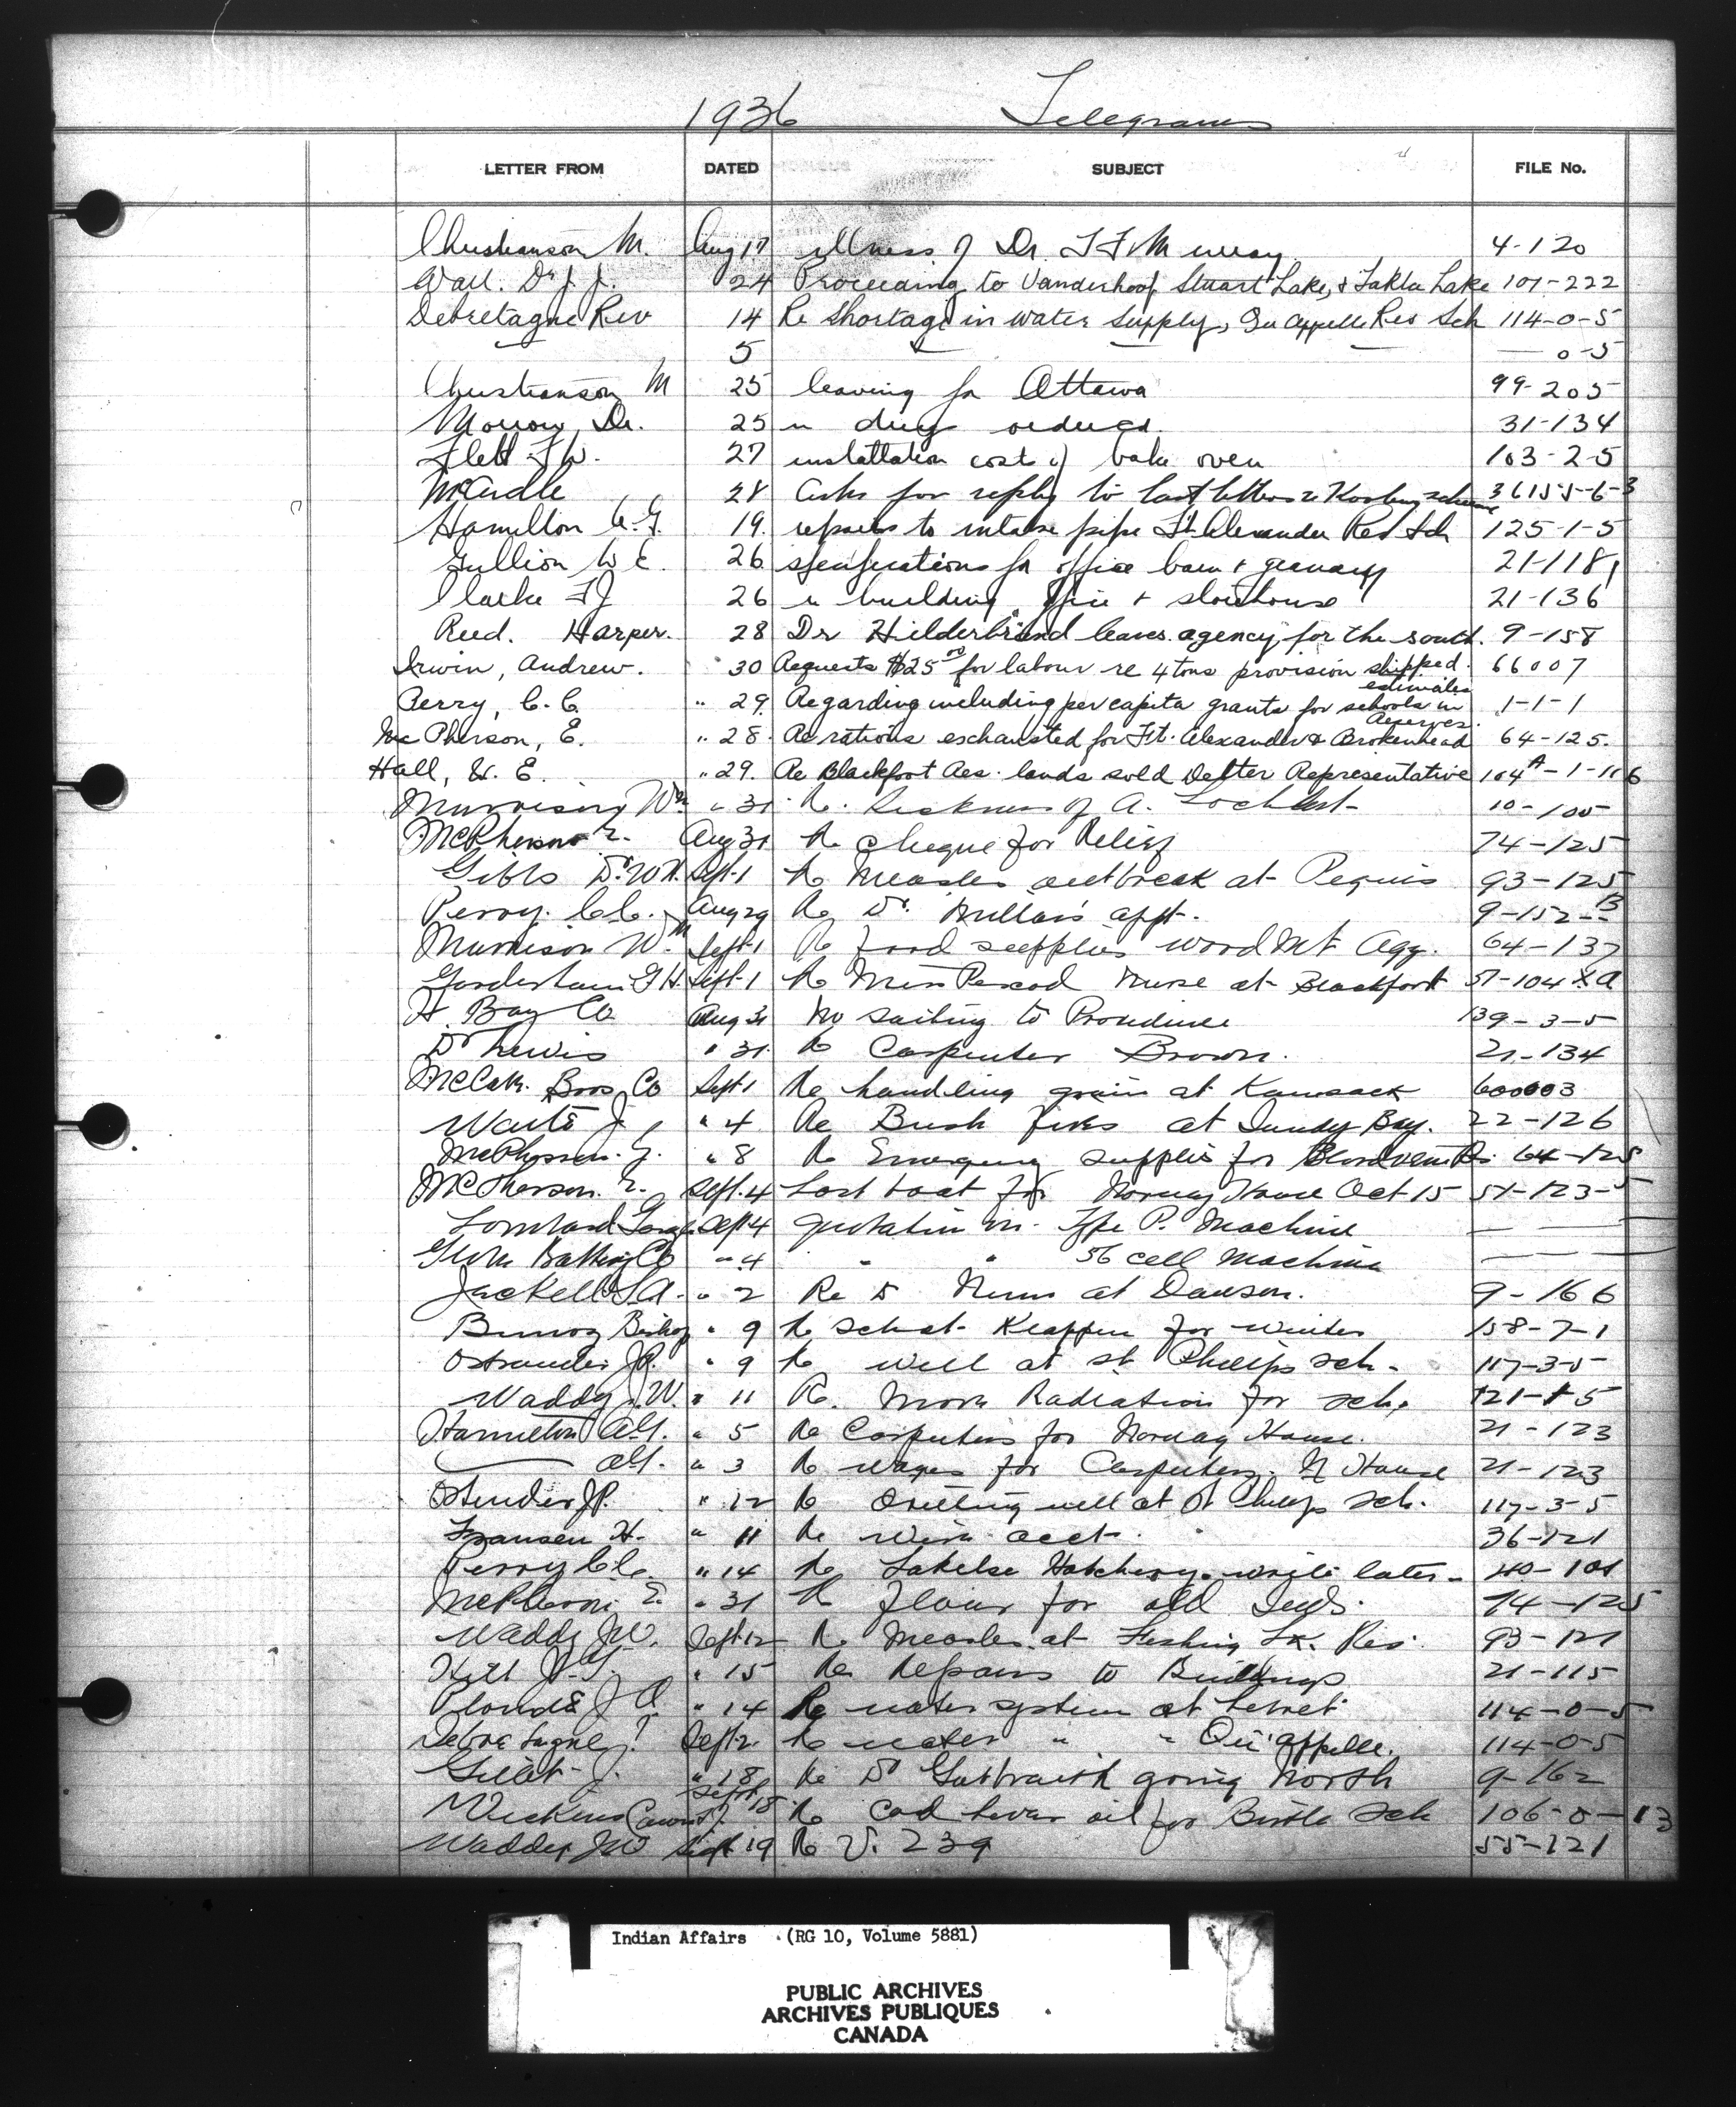 1936 Telegrams
LETTER FROM DATED SUBJECT FILE No.
Christianson M. Aug 17 illness of Dr. T F Murray 4-120
Wall. Dr J. J. 24 Proceeding to Vanderhoof Stuart Lake, & Takla Lake 101-222
Debretagne Rev 14 Re Shortage in water supply, Qu Appelle Res Sch 114-0-5
5 — 0-5
Christianson M 25 leaving for Ottawa 99-205
Morrow, Dr. 25 re drug order 31-134
Flett F W. 27 installation costs of bake oven 103-2-5
McArdle 28 Asks for reply to last letter re 36155-6-3
Hamilton A. G. 19. repairs to intake pipe Ft. Alexander Res Sch 125-1-5
Gullion W E. 26 specifications for office barn & granary 21-118
Clarke F J 26 re building office & storehouse 21-136
Reed. Harper. 28 Dr Hilderbrand leaves agency for the south. 9-158
Irwin, Andrew. 30 Requests $25 00 for labour re 4 tons provision shipped. 66007
Perry, C. C. " 29. Regarding including per capita grants for schools in estimates 1-1-1
McPherson, E. " 28. Re rations exchausted for Ft. Alexander & Brokenhead Reserves. 64-125.
Hall, H. E. " 29. Re Blackfoot Res. lands sold Delter Representative 104A-1-106
Murrison Wm " 31 Re. Sickness of A. Lochhart 10-105
McPherson E. Aug 31 Re cheque for Relief 74-125
Gibbs Dr. W N. Sept-1 Re Measles outbreak at Peguis 93-125
Perry. C.C. Aug 29 Re Dr. appt. 9-152-B
Murrison Wm Sept-1 Re food supplies Wood Mt Agy. 64-137
Gooderham G H. Sept-1 Re Miss Nurse at Blackfoot 51-104 A
H. Bay Co Aug 31 No sailing to Providence 139-3-5
Dr Lewis " 31. Re Carpenter Brown. 21-134
McCabe Bros Co Sept 1 Re handling grain at Kamsack 600003
Waite J. " 4 Re Bush fires at Sandy Bay. 22-126
McPherson. E. " 8 Re Emergency supplies for Bloodvein Rs. 64-125
McPherson. E. Sept. 4 Last boat for Norway House Oct 15 51-123-5
Sept 4 quotation on. Type P. Machine — —
Battery Co " 4 " " 56 cell Machine — —
Jackell J A. " 2 Re Dr Nunn at Dawson. 9-166
Bunoz Bishop " 9 Re school Klappan for winter 158-7-1
Ostrander J P. " 9 Re well at St. Phillips sch. 117-3-5
Waddy J. W. " 11 Re. More Radiation for sch. 121-1-5
Hamilton A.G. " 5 Re Carpenters for Norway House. 21-123
— A.G. " 3 Re wages for Carpenters. N House 21-123
Ostrander J P. " 12 Re Drilling well at St Phillips sch. 117-3-5
Fransen H. " 11 Re acct. 36-121
Perry C.C. " 14 Re Lakelse Hatchery. write later. 40-101
McPherson E. " 31 Re flour for old Inds. 74-125
Waddy J W. Sept 12 Re Measles at Fishing Lk. Res. 93-121
Hill J. T. " 15 Re Repairs to Buildings 21-115
Plourde J O. " 14 Re water system at Lebret 114-0-5
Sept 12 Re water " " Qu'appelle. 114-0-5
Gillet J. " 18 Re Dr Galbraith going North 9-162
Sept 18 Re Cod liver oil for Birtle Sch 106-0-13
Waddy J W Sept 19 Re V. 239 55-121
Indian Affairs (RG 10, Volume 5881)
PUBLIC ARCHIVES
ARCHIVES PUBLIQUES
CANADA